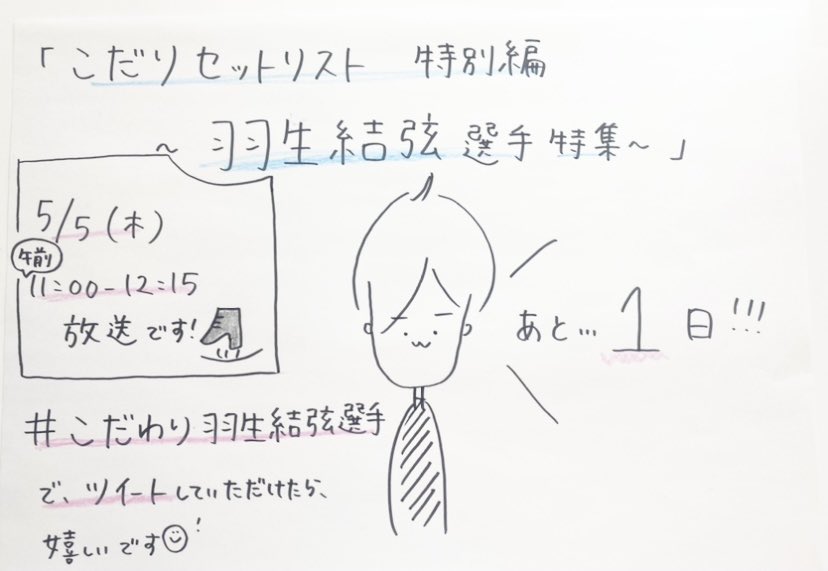 「こだりセットリスト 特別編
~羽生結弦選手特集~」
5/5(木)
午前
11:00-12:15
放送です!
あと…1日!!!
#こだわり羽生結弦選手
で、ツイートしていただけたら、
嬉しいです!